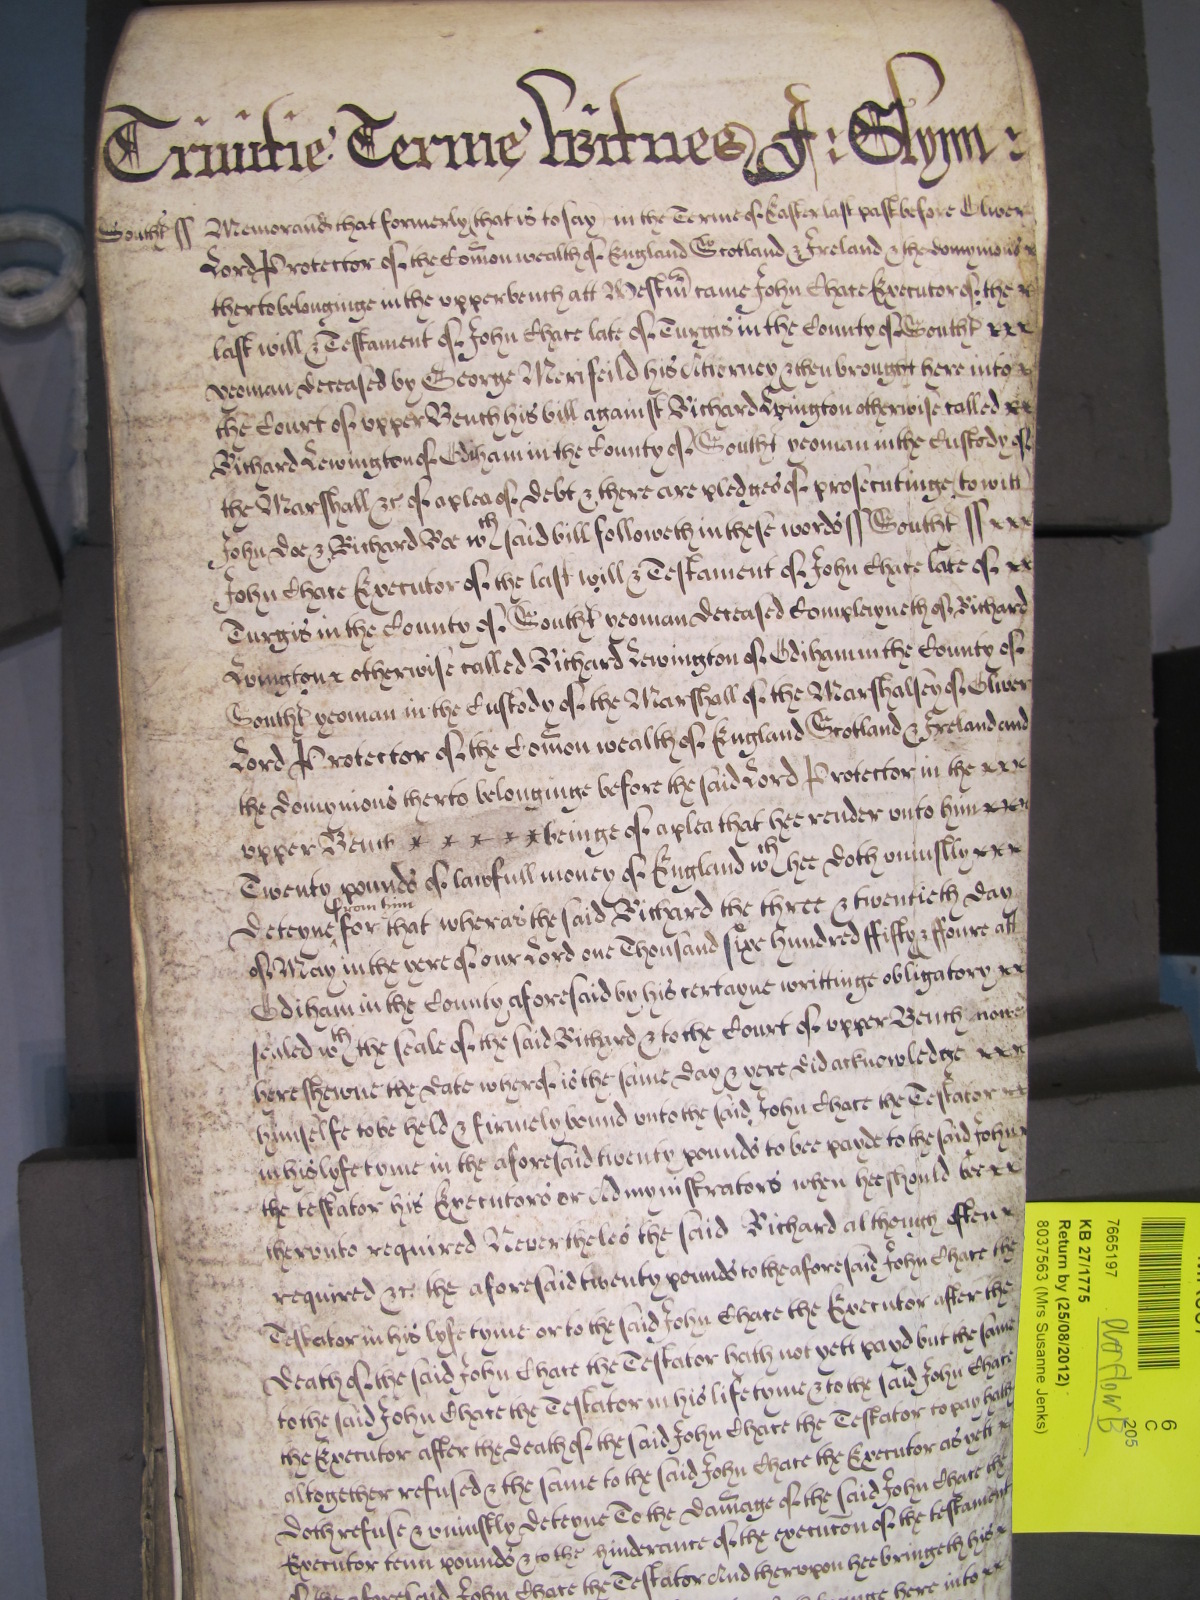 Trinitie Terme Witnes J: Glynn:
Southt ss Memorand that formerly (that is to say) in the Terme of Easter last past before Oliver
Lord Protector of the Comon wealth of England Scotland & Ireland & the domynions
therto belonginge in the upper bench att Westm came John Chace Executor of the
last will & Testament of John Chace late of Turgis in the County of Southt
yeoman deceased by George Merifeild his Attorney & then brought here into
the Court of upper Bench his bill against Richard Lyvington otherwise called
Richard Lewington of Odiham in the County of Southt yeoman in the Custody of
the Marshall &c of a plea of debt & there are pledges of prosecutinge (to witt
John Doe & Richard Roe wth said bill followeth in these words ss Southt ss
John Chace Executor of the last will & Testament of John Chace late of
Turgis in the County of Southt yeoman deceased Compleyneth of Richard
Lyvington otherwise called Richard Lewington of Odiham in the County of
Southt yeoman in the Custody of the Marshall of the Marshalsey of Oliver
Lord Protector of the Comon wealth of England Scotland & Ireland and
the domynions therto belonginge before the said Lord Protector in the
upper Bench beinge of a plea that hee render unto him
Twenty pounds of lawfull money of England wth hee doth uniustly
from him
deteyne for that wheras the said Richard the three & twentieth day
of May in the yere of our Lord one Thousand sixe hundred ffifty & ffoure att
Odiham in the County aforesaid by his certayne writtinge obligatory
sealed wth the seale of the said Richard & to the Court of upper Bench nowe
here shewne the date wherof is the same day & yere did acknowledge
himselfe to be held & firmely bound unto the said John Chace the Testator
in his lyfe tyme in the aforesaid twenty pounds to bee payde to the said John
the testator his Executors or Administrators when hee should bee
therunto required Neverthelés the said Richard although often
required &c the aforesaid twenty pounds to the aforesaid John Chace the
Testator in his lyfe tyme or to the said John Chace the Executor after the
death of the said John Chace the Testator hath not yett payd but the same
to the said John Chace the Testator in his life tyme & to the said John Chace
the Executor after the death of the said John Chace the Testator to pay hath
altogether refused & the same to the said John Chace the Executor as yett
doth refuse & uniustly deteyne To the damage of the said John Chace the
Executor tenn pounds & to the hinderance of the execucon of the testament
of the aforesaid John Chace the Testator And therupon hee bringeth his
here into
7665197
KB 27/1775
Return by (25/08/2012)
8037563 (Mrs Susanne Jenks)
6
C
205